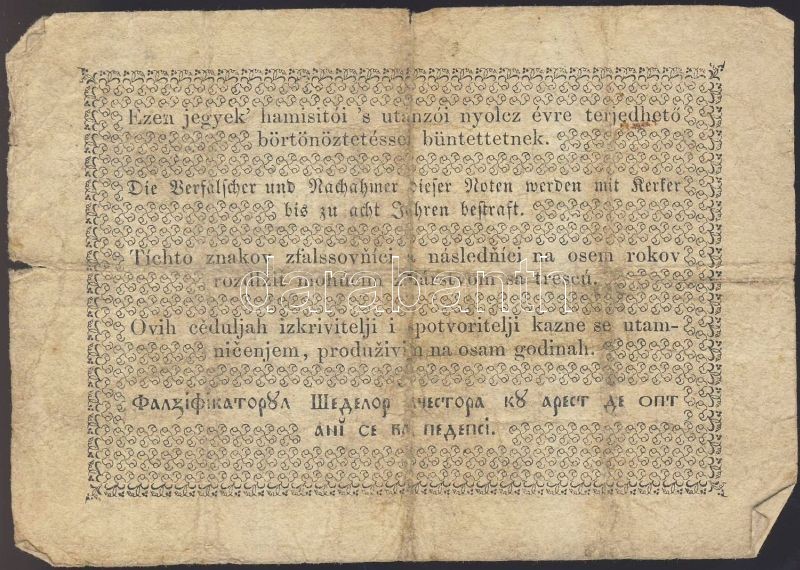 Ezen jegyek' hamisitói 's utánzói nyolcz évre terjedhető
börtönöztetéssel büntettetnek.
Die Verfälscher und Nachahmer dieser Noten werden mit Kerker
bis zu acht Jahren bestraft.
Tíchto znakov zfalssovníci a následňíci na osem rokov
rozdlžiť mohúcim žalárstvom sa trescú.
Ovih cěduljah izkrivitelji i spotvoritelji kazne se utam-
ničenjem, produživim na osam godinah.
Фалꙋіфікаторꙋл Шеделор ачестора кꙋ арест де опт
анї се ва педепсі.
darabanth